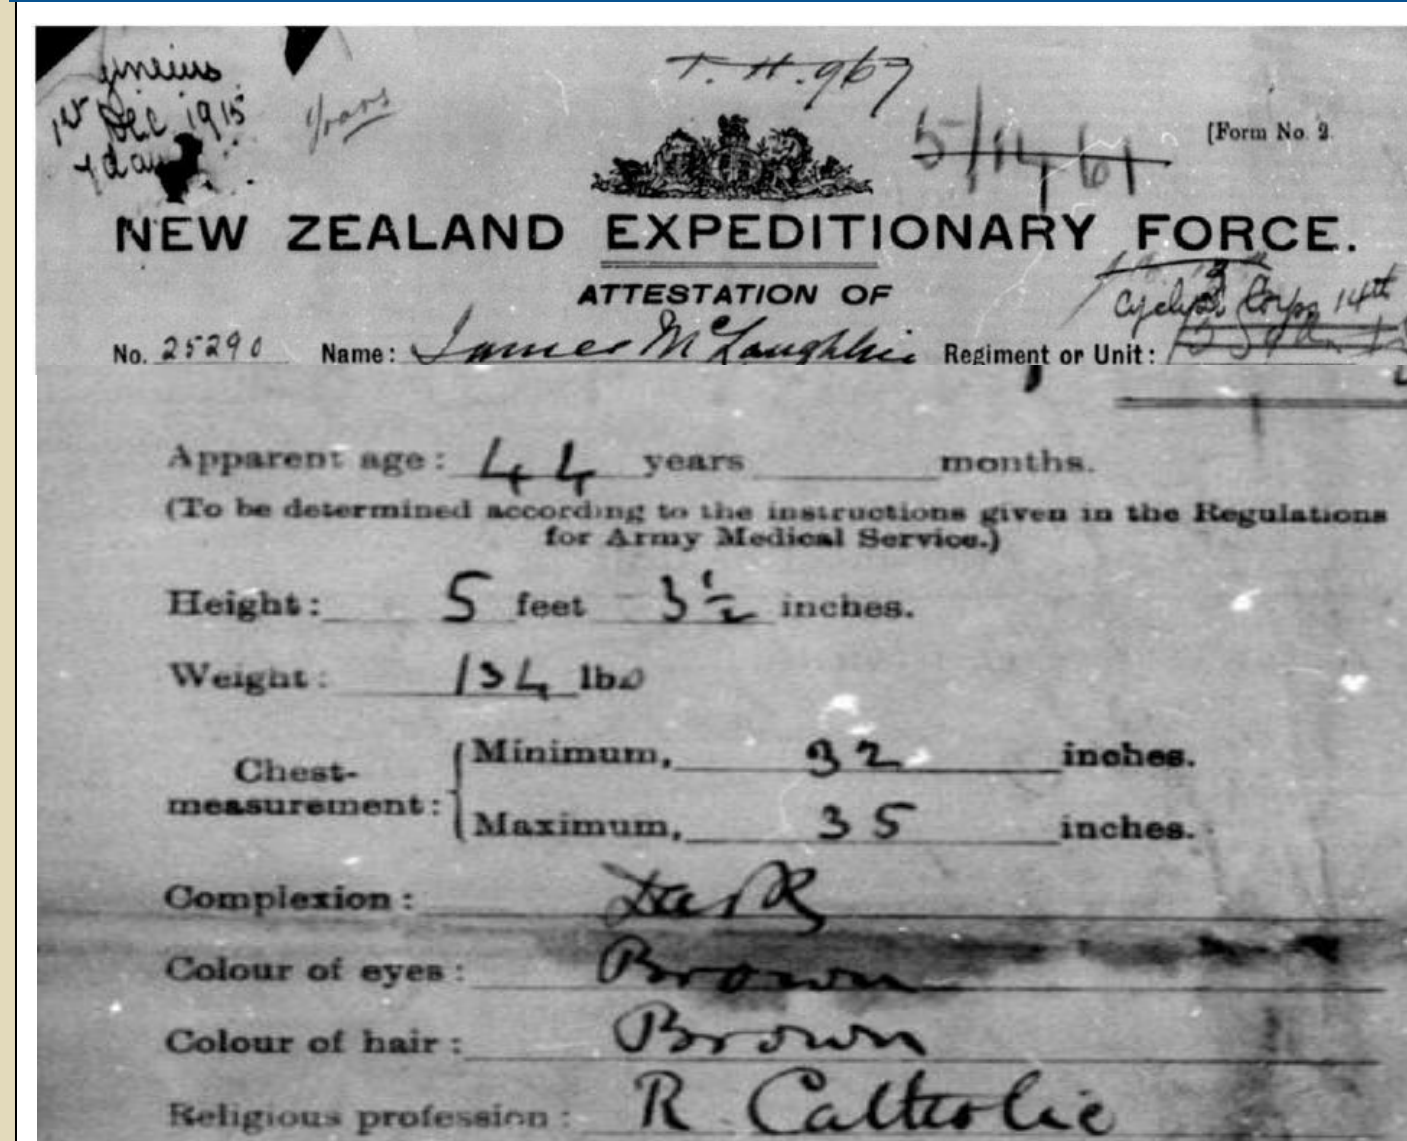 1st Dec 1915
T. H. 967
5/1461
[Form No. 2.
NEW ZEALAND EXPEDITIONARY FORCE.
ATTESTATION OF
Cyclist Corps 14th
No. 25290 Name: James McLaughlin Regiment or Unit:
Apparent age: 44 years months.
(To be determined according to the instructions given in the Regulations
for Army Medical Service.)
Height: 5 feet 3½ inches.
Weight: 134 lbs
Chest-
measurement:
Minimum, 32 inches.
Maximum, 35 inches.
Complexion: Dark
Colour of eyes: Brown
Colour of hair: Brown
Religious profession: R Catholic